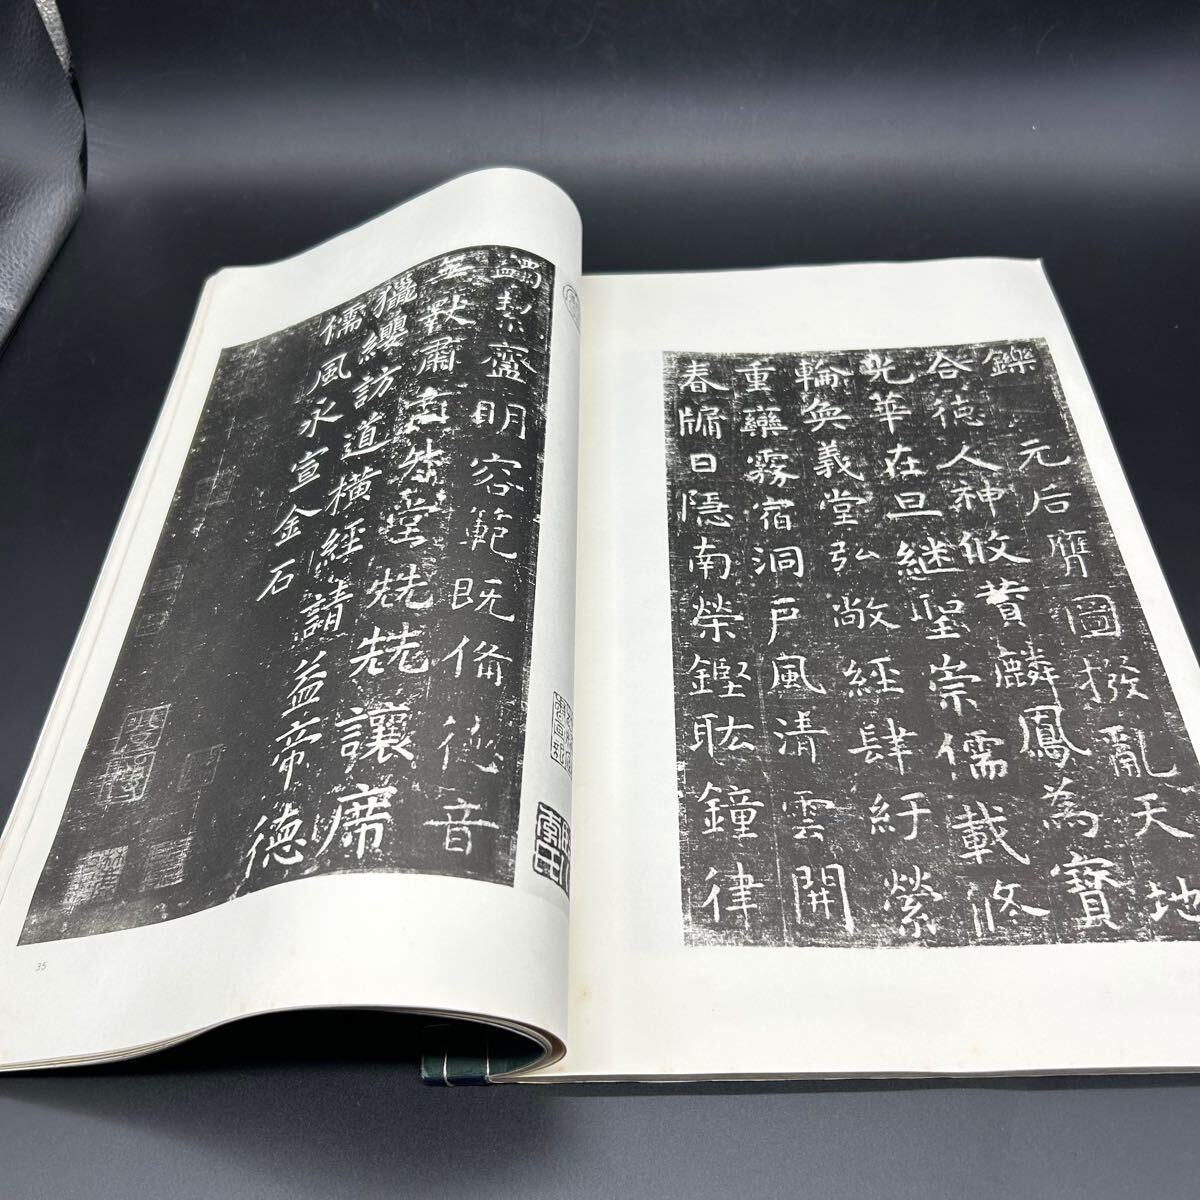 鑠 元后膺圖撥亂天地
合德人神攸賛麟鳳為寶
光華在旦継聖崇儒載脩
輪奐義堂弘敞經肆紆縈
重欒霧宿洞戶風清雲開
春牖日隱南榮鏗耾鐘律
蠲絜齍明容範既備德音
無斁肅肅升堂兟兟讓席
獵纓訪道橫經請益帝德
儒風永宣金石
35